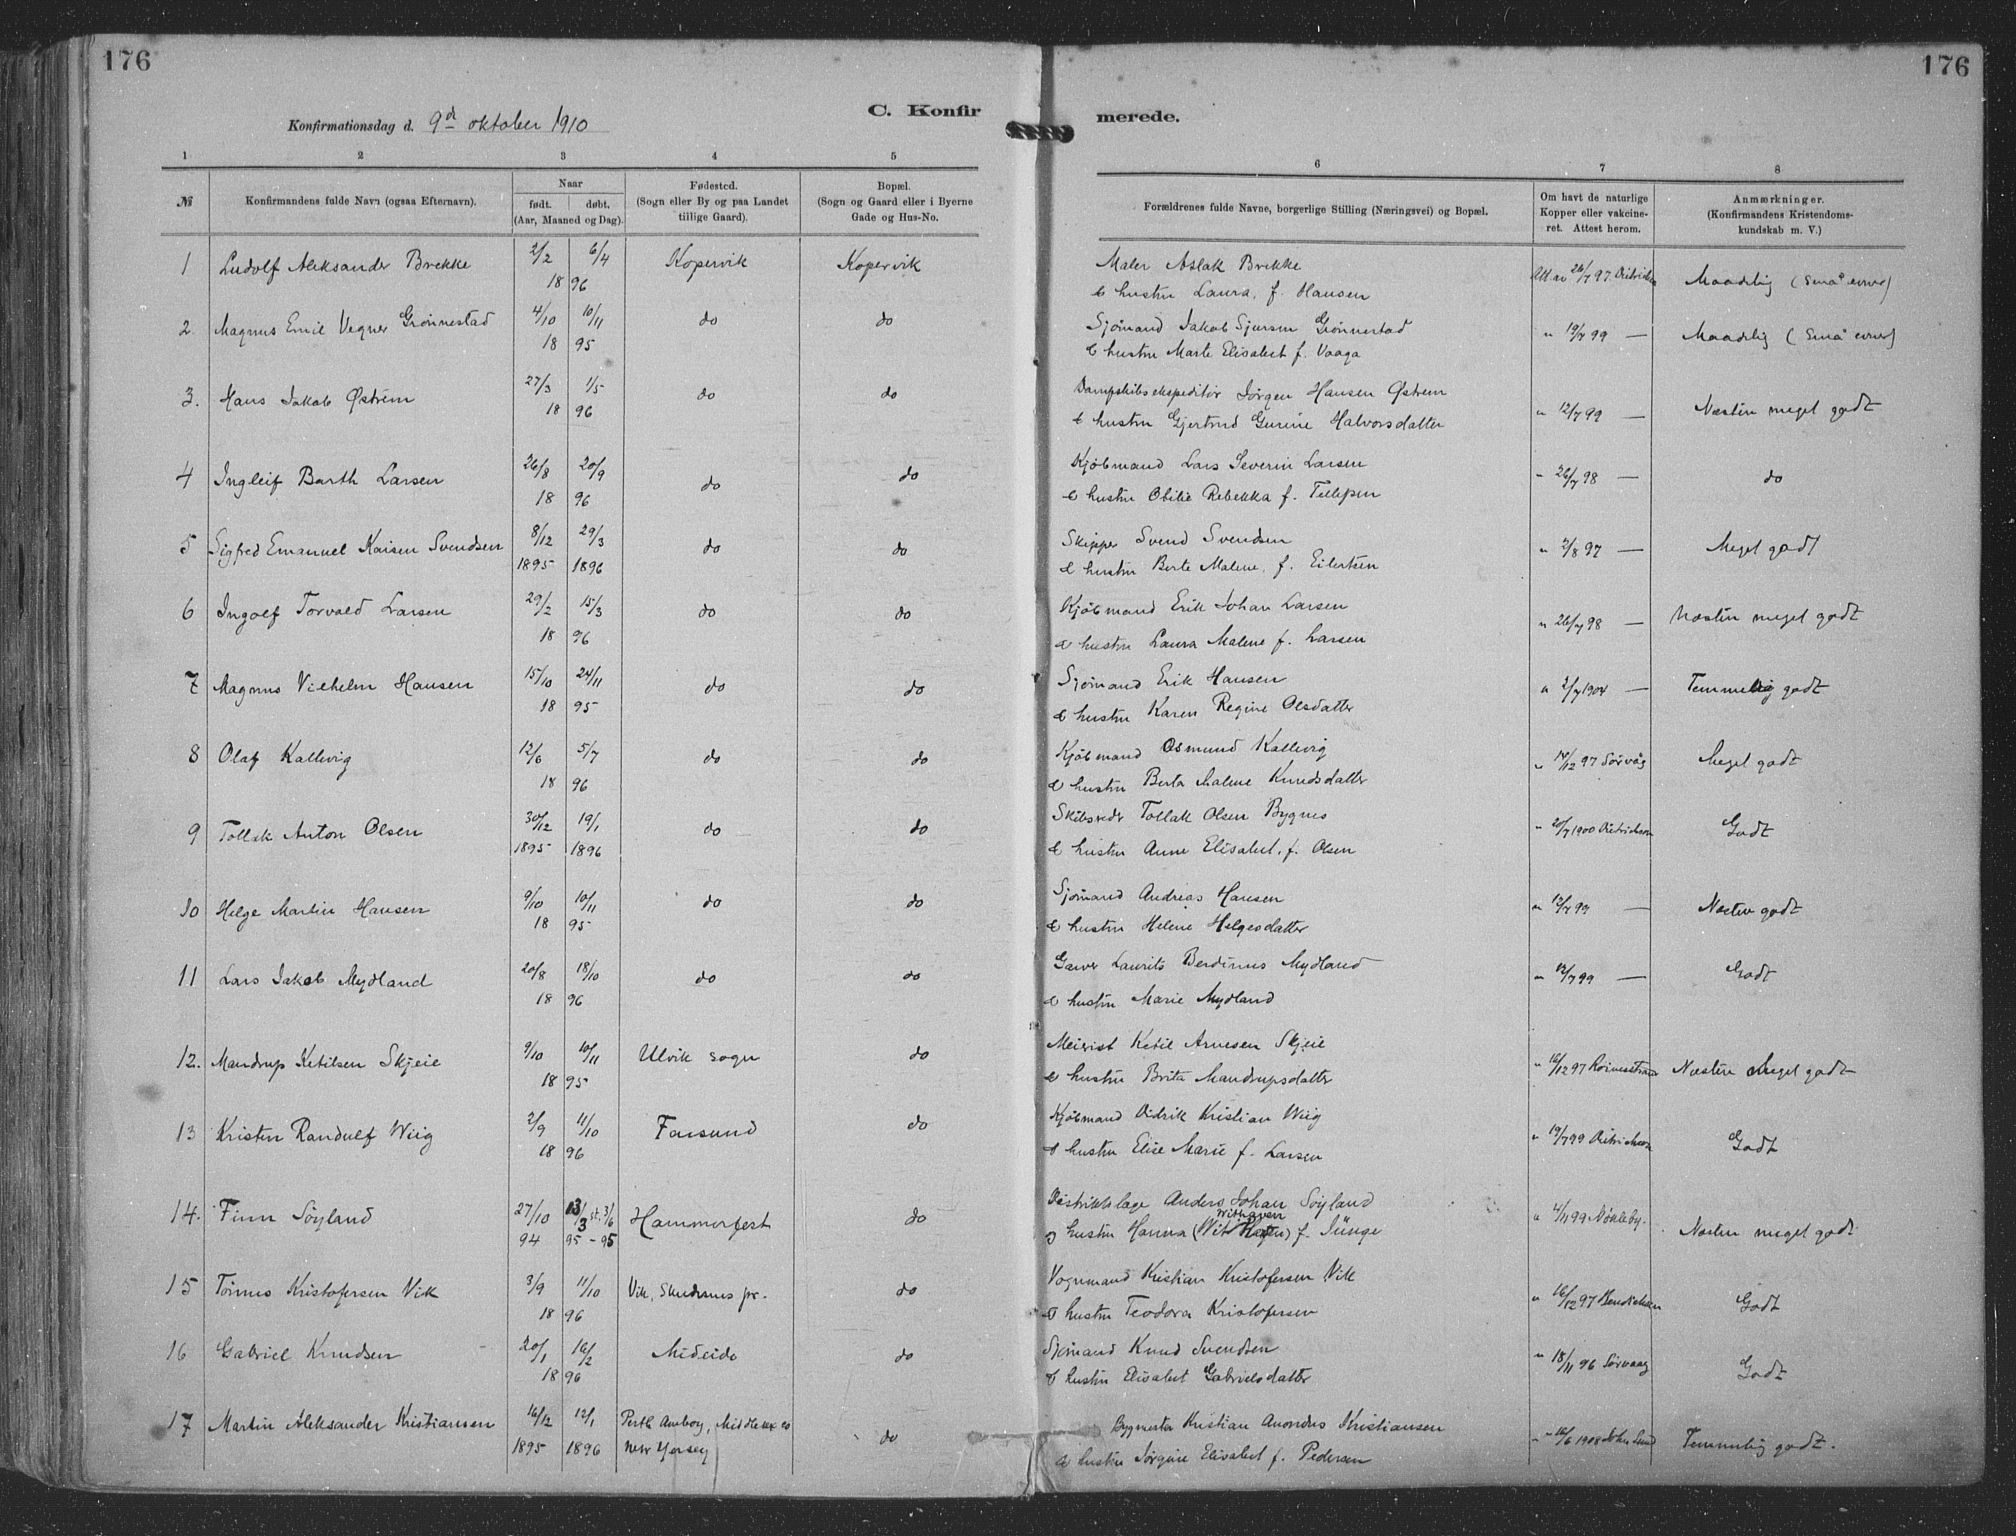 176
176
C. Konfirmerede.
Konfirmationsdag d. 9d oktober 1910
1 2 3 4 5 6 7 8
№ Konfirmandens fulde Navn (ogsaa Efternavn). Naar født. døbt. (Aar, Maaned og Dag). Fødested. (Sogn eller By og paa Landet tillige Gaard). Bopæl. (Sogn og Gaard eller i Byerne Gade og Hus-No. Forældrenes fulde Navne, borgerlige Stilling (Næringsvei) og Bopæl. Om havt de naturlige Kopper eller vakcineret. Attest herom. Anmærkninger. (Konfirmandens Kristendomskundskab m. V.)
1 Ludolf Aleksander Brekke 2/2 6/4 Kopervik Kopervik Maler Aslak Brekke Att. av 26/7 97 Dietrichson Maadelig (små evner)
18 96 & hustru Laura, f. Hansen
2 Magnus Emil Vegner Grønnestad 4/10 10/11 do do Sjømand Jakob Sjursen Grønnestad " 19/7 99 — Maadelig (små evner)
18 95 & hustru Marte Elisabet f. Vaaga
3. Hans Jakob Østrem 27/3 1/5 do do Dampskibsekspeditør Jørgen Hansen Østrem " 12/7 99 — Næsten meget godt
18 96 & hustru Gjertrud Gurine Halvorsdatter
4 Ingleif Barth Larsen 26/8 20/9 do do Kjøbmand Lars Severin Larsen " 26/7 98 — do
18 96 & hustru Obilie Rebekka f. Tellefsen
5 Sigfred Emanuel Kaisen Svendsen 8/12 29/3 do do Skipper Svend Svendsen " 2/8 97 — Meget godt
1895 1896 & hustru Berte Malene, f. Eilertsen
6 Ingolf Torvald Larsen 29/2 15/3 do do Kjøbmand Erik Johan Larsen " 26/7 98 — Næsten meget godt
18 96 & hustru Laura Malene f. Larsen
7 Magnus Vilhelm Hansen 15/10 24/11 do do Sjømand Erik Hansen " 2/7 1904 — Temmelig godt
18 95 & hustru Karen Regine Olsdatter
8 Olaf Kallevig 12/6 5/7 do do Kjøbmand Osmund Kallevig " 14/12 97 Sørvåg Meget godt
18 96 & hustru Berta Malene Knudsdatter
9 Tollak Anton Olsen 30/12 19/1 do do Skibsredr Tollak Olsen Bygnes " 20/7 1900 Dietrichson Godt
1895 1896 & hustru Anne Elisabet, f. Olsen
10 Helge Martin Hansen 9/10 10/11 do do Sjømand Andreas Hansen " 12/7 99 — Næsten godt
18 95 & hustru Helene Helgesdatter
11 Lars Jakob Mydland 20/8 18/10 do do Garver Laurits Berdinus Mydland " 12/7 99 — Godt
18 96 & hustru Marie Mydland
12. Mandrup Ketilsen Skjeie 9/10 10/11 Ulvik sogn do Meierist Ketil Arnesen Skjeie " 16/12 97 Næsten Meget godt
18 95 & hustru Brita Mandrupsdatter
13 Kristen Randulf Wiig 2/9 11/10 Farsund do Kjøbmand Didrik Kristian Wiig " 19/7 99 Dietrichson Godt
18 96 & hustru Elise Marie f. Larsen
14. Finn Söyland 27/10 13/3 st. 3/6 Hammerfest do Distriktslæge Anders Johan Söyland " 4/11 99 Nökleby. Næsten meget godt
94 95 - 95 & hustru Hanna (Withaven) f. Jünge
15 Tönnes Kristofersen Vik 3/9 11/10 Vik, Skudenes pr. do Vognmand Kristian Kristofersen Vik " 16/12 97 Bendichsen Godt
18 96 & hustru Teodora Kristofersen
16 Gabriel Knudsen 20/1 16/2 Mideide do Sjømand Knud Svendsen " 18/11 96 Sørvaag Godt
18 96 & hustru Elisabet Gabrielsdatter
17 Martin Aleksander Kristiansen 16/12 12/1 Perth Amboy, Middlesex co do Bygmester Kristian Amandus Kristiansen " 16/6 1908 John Lund Temmelig godt.
1895 1896 New Yersey & hustru Jørgine Elisabet f. Pedersen